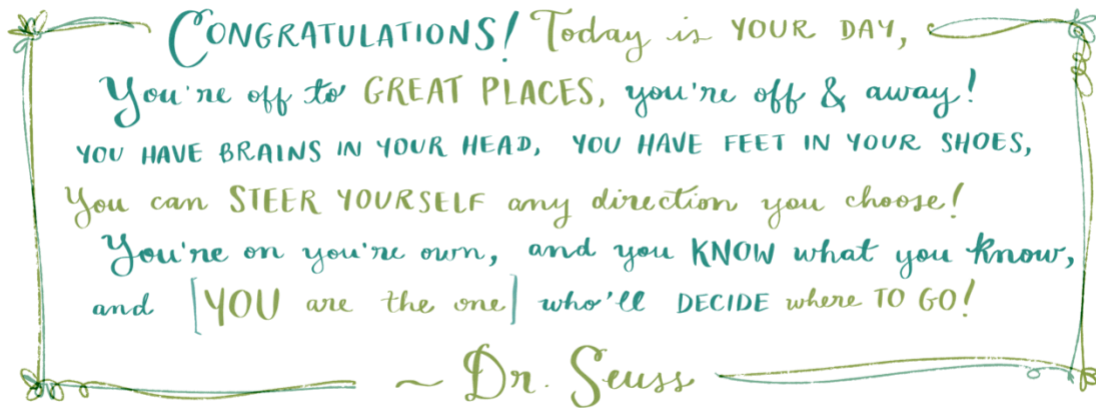 CONGRATULATIONS! Today is YOUR DAY,
You're off to GREAT PLACES, you're off & away!
YOU HAVE BRAINS IN YOUR HEAD, YOU HAVE FEET IN YOUR SHOES,
You can STEER YOURSELF any direction you choose!
You're on you're own, and you KNOW what you know,
and [YOU are the one] who'll DECIDE where TO GO!
~ Dr. Seuss